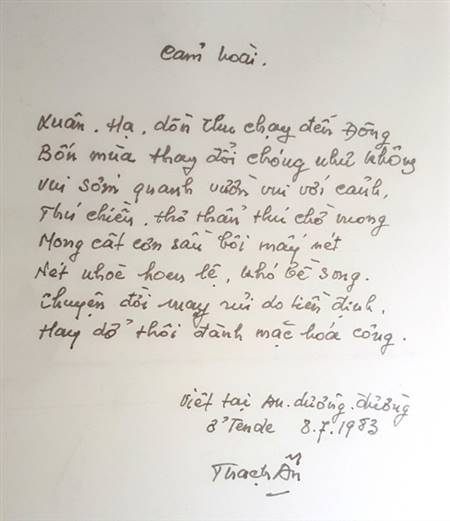 Cảm hoài.
Xuân. Hạ, dồn thu chạy đến Đông
Bốn mùa thay đổi chóng như không
Vui sớm quanh vườn vui với cảnh,
Thú chiều, thơ thẩn thú chờ mong
Mong cất cơn sầu bôi mấy nét
Nét nhoè hoen lệ, khó bề song.
Chuyện đời may rủi do tiền định,
Hay dở thôi đành mặc hóa công.
Viết tại An. dưỡng. đường
ở Tende 8.7.1983
Thạch Ấn